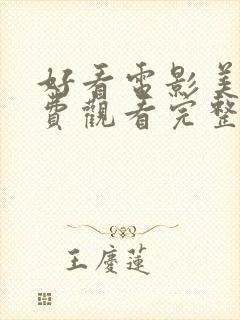 好看電影美
費觀看完整
王慶蓮